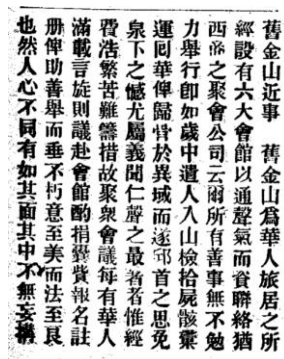 舊金山近事　舊金山爲華人旅居之所
經設有六大會館以通聲氣而資聯絡猶
西商之聚會公司云爾所有善事無不勉
力舉行卽如歲中遣人入山檢拾屍骸彙
運囘華俾歸骨於異域而遂邱首之思免
泉下之憾尤屬義聞仁聲之最著者惟經
費浩繁苦難籌措故聚衆會議每有華人
滿載言旋則議赴會館酌捐費貲報名註
册俾助善舉而垂不朽意至美而法至良
也然人心不同有如其面其中不無妄搆